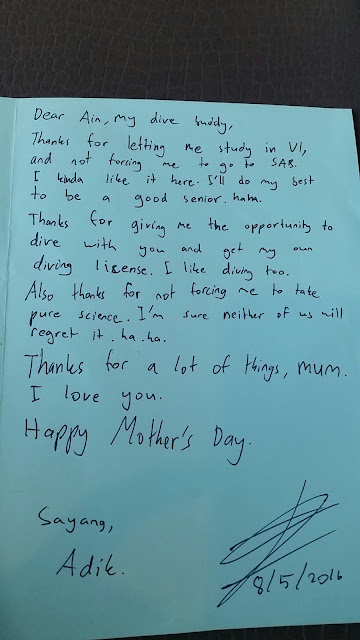 Dear Ain, my dive buddy,
Thanks for letting me study in VI,
and not forcing me to go to SAB.
I kinda like it here. I'll do my best
to be a good senior. haha.
Thanks for giving me the opportunity to
dive with you and get my own
diving license. I like diving too.
Also thanks for not forcing me to take
pure science. I'm sure neither of us will
regret it. ha. ha.
Thanks for a lot of things, mum.
I love you.
Happy Mother's Day.
Sayang,
Adik.
8/5/2016